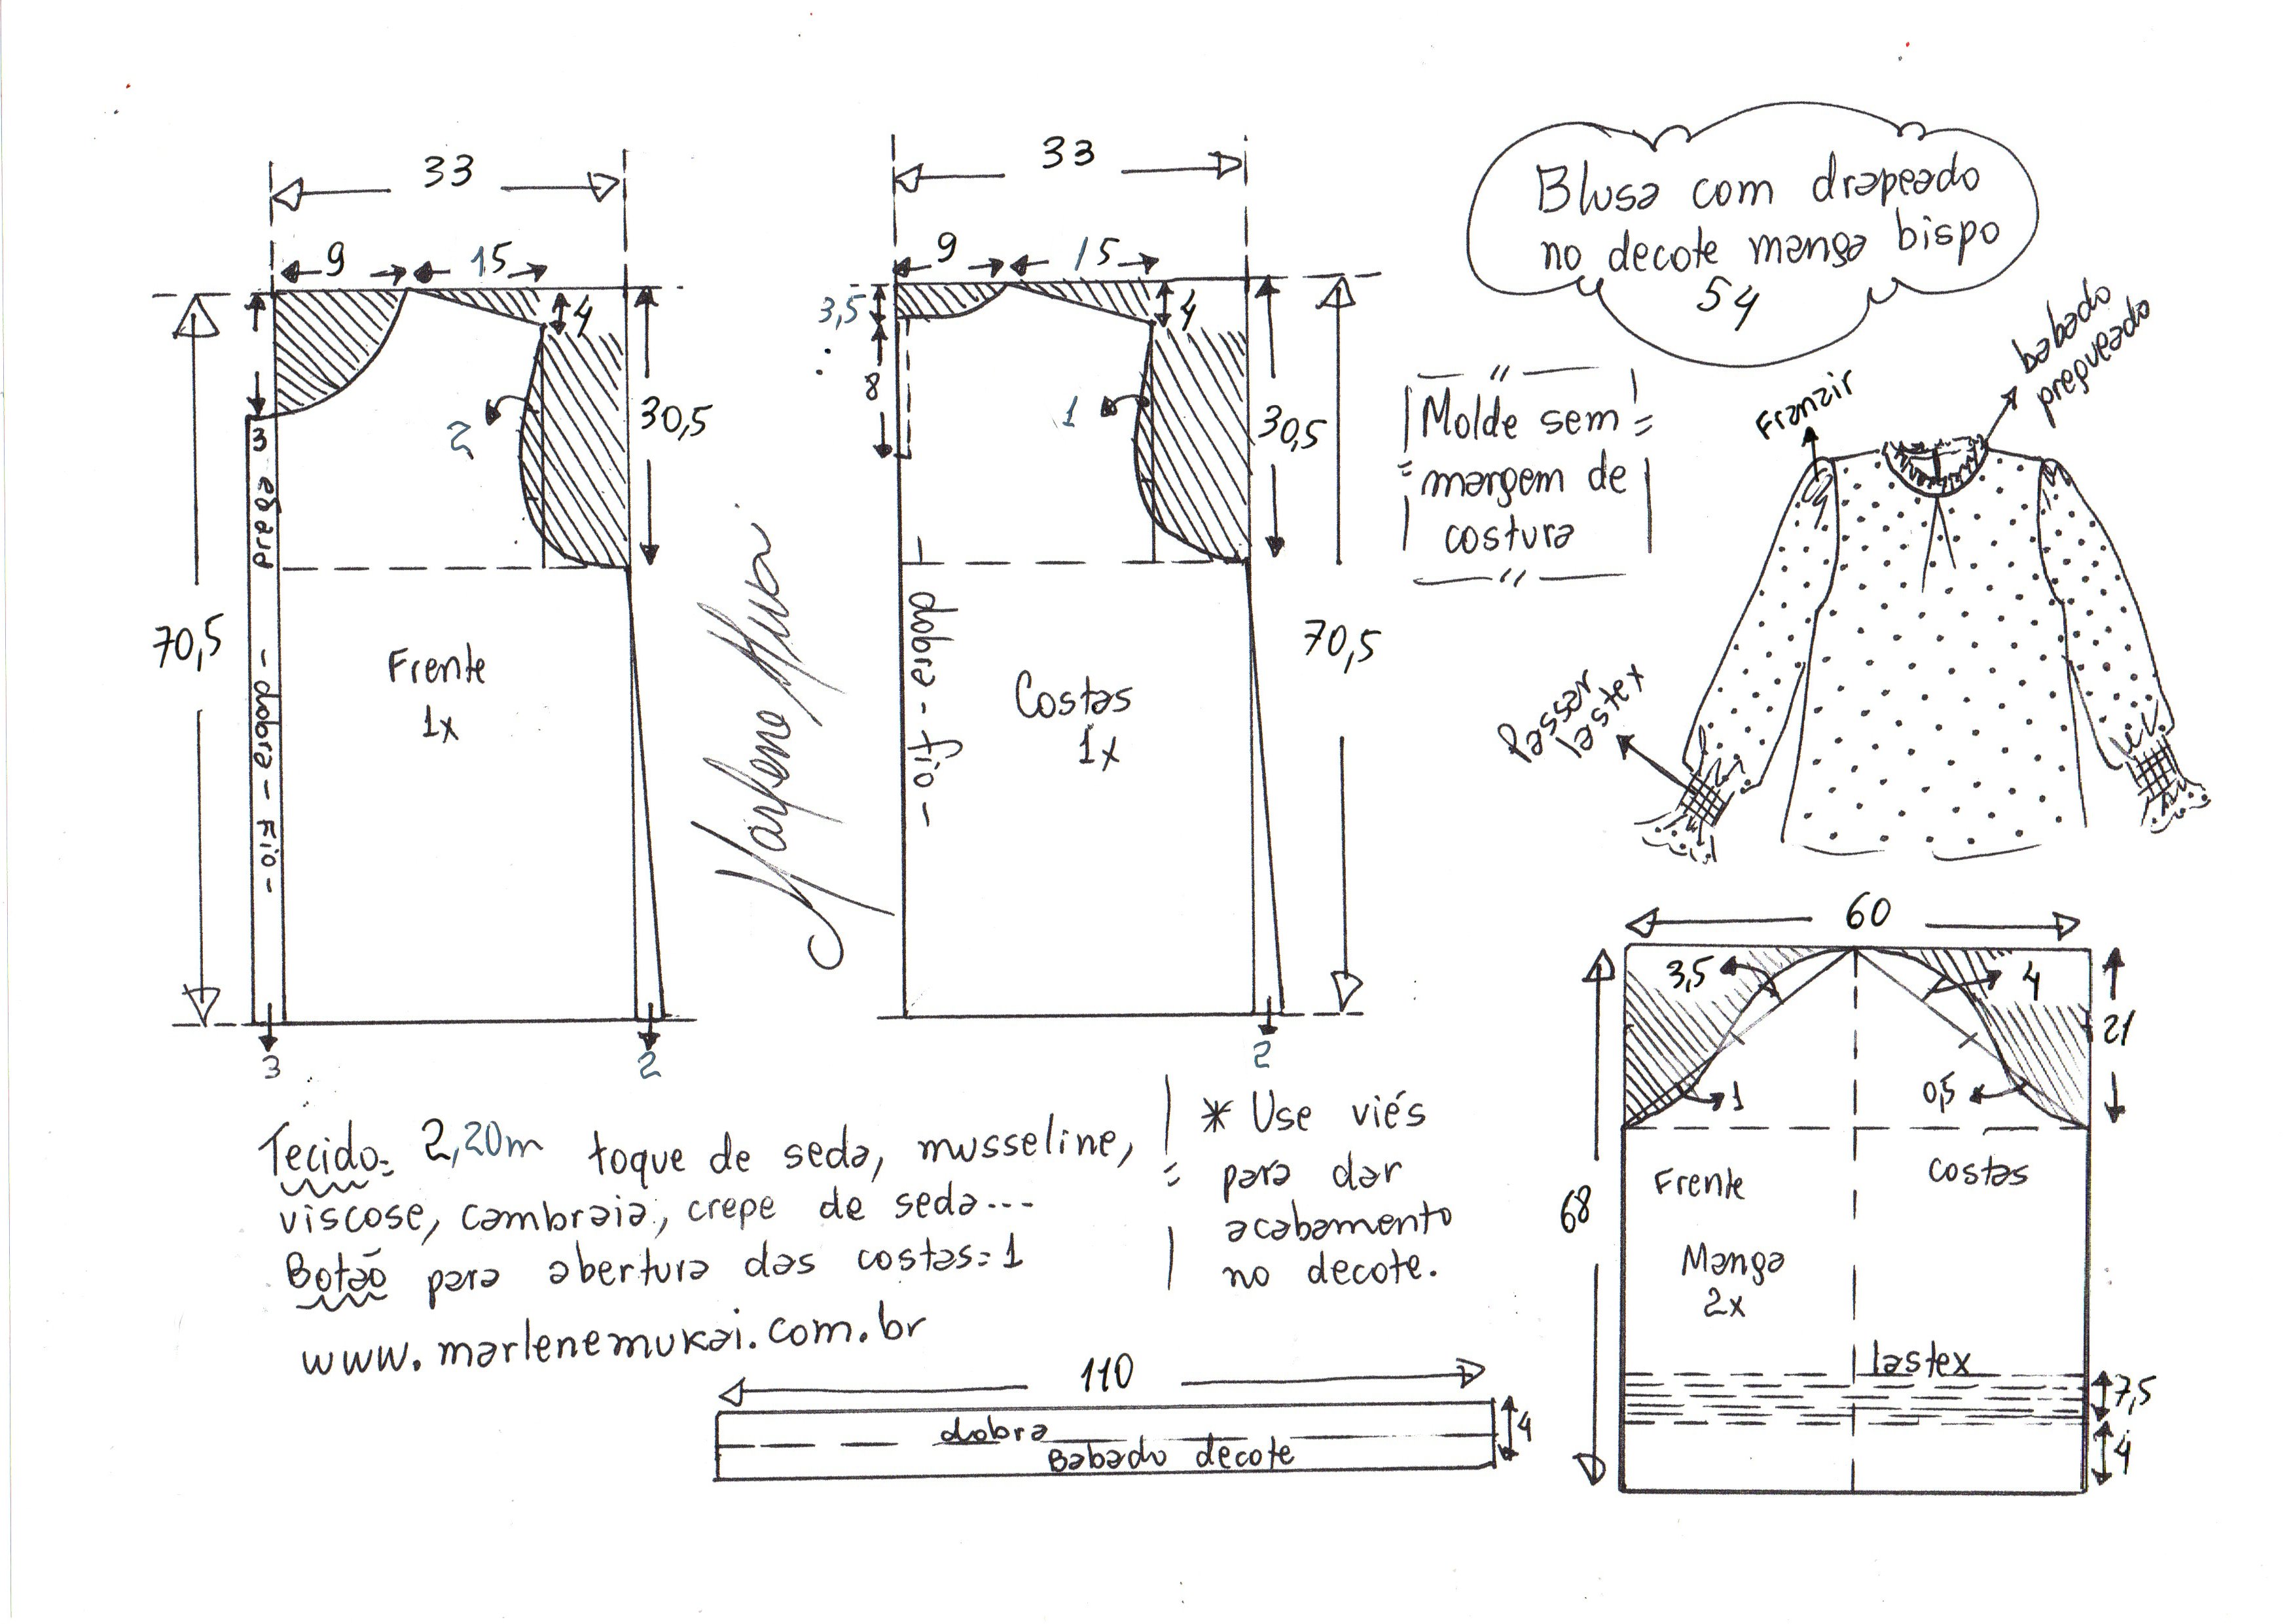 33
9
15
4
30,5
2
3
prega - dobra - Fio -
70,5
Frente
1x
3
2
33
9
15
3,5
8
4
1
30,5
dobra - fio -
70,5
Costas
1x
2
Blusa com drapeado
no decote manga bispo
54
Molde sem
margem de
costura
Franzir
babado
pregueado
Passar
lastex
60
3,5
4
21
1
0,5
Frente
Costas
68
Manga
2x
lastex
7,5
4
Tecido= 2,20m toque de seda, musseline,
viscose, cambraia, crepe de seda...
Botão para abertura das costas=1
www.marlenemukai.com.br
* Use viés
para dar
acabamento
no decote.
110
dobra
Babado decote
4